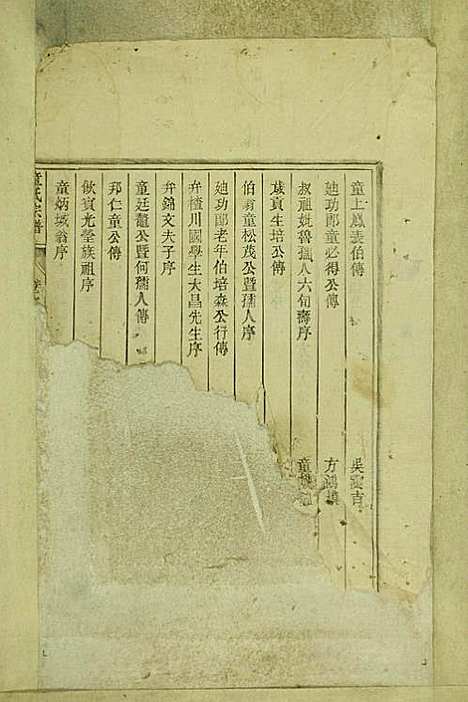 童上鳳表伯傳 吳 吉
迪功郎童必得公傳 方鴻
叔祖妣魯孺人六旬壽序 童
歲貢生培公傳
伯翁童松茂公暨孺人序
迪功郎老年伯培森公行傳
弁植川國學生大昌先生序
弁錦文夫子序
童廷龍公暨何孺人傳
邦仁童公傳
飲賓光瑩族祖序
童炳域翁序
童氏宗譜